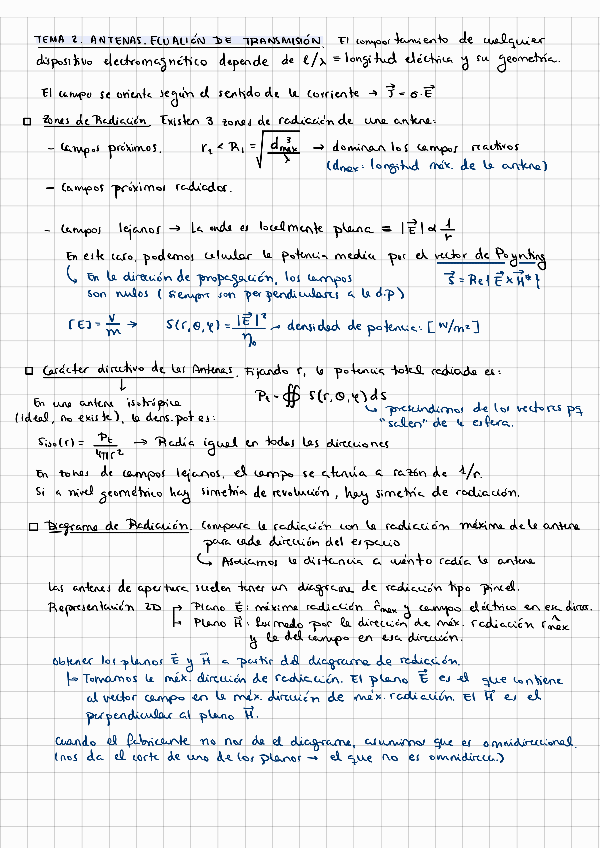 TEMA 2. ANTENAS. ECUACIÓN DE TRANSMISIÓN. El comportamiento de cualquier
dispositivo electromagnético depende de l/λ = longitud eléctrica y su geometría.
El campo se orienta según el sentido de la corriente → J⃗ = σ·E⃗
□ Zonas de Radiación. Existen 3 zonas de radiación de una antena:
- Campos próximos. r₁ < R₁ = √(d³max/λ) → dominan los campos reactivos
(dmax: longitud máx. de la antena)
- Campos próximos radiados.
- Campos lejanos → La onda es localmente plana = |E⃗| α 1/r
En este caso, podemos calcular la potencia media por el vector de Poynting
↳ En la dirección de propagación, los campos S⃗ = Re{E⃗ x H⃗*}
son nulos (siempre son perpendiculares a la d.p)
[E] = V/m → S(r,θ,φ) = |E⃗|²/η₀ → densidad de potencia: [W/m²]
□ Carácter directivo de las Antenas. Fijando r, la potencia total radiada es:
↓
En una antena isotrópica Pt = ∯ S(r,θ,φ) ds
(ideal, no existe), la dens. pot es: ↳ prescindimos de los vectores pq
"salen" de la esfera.
Siso(r) = Pt/4πr² → Radia igual en todas las direcciones
En zonas de campos lejanos, el campo se atenúa a razón de 1/r.
Si a nivel geométrico hay simetría de revolución, hay simetría de radiación.
□ Diagrama de Radiación. Compara la radiación con la radiación máxima de la antena
para cada dirección del espacio
↳ Asociamos la distancia a cuánto radía la antena
Las antenas de apertura suelen tener un diagrama de radiación tipo pincel.
Representación 2D → Plano E⃗: máxima radiación r̂max y campo eléctrico en esa direcc.
→ Plano H⃗: formado por la dirección de máx. radiación r̂max
y la del campo en esa dirección.
Obtener los planos E⃗ y H⃗ a partir del diagrama de radiación.
↳ Tomamos la máx. dirección de radiación. El plano E⃗ es el que contiene
al vector campo en la máx. dirección de máx. radiación. El H⃗ es el
perpendicular al plano H⃗.
Cuando el fabricante no nos da el diagrama, asumimos que es omnidireccional.
(nos da el corte de uno de los planos → el que no es omnidirecc.)